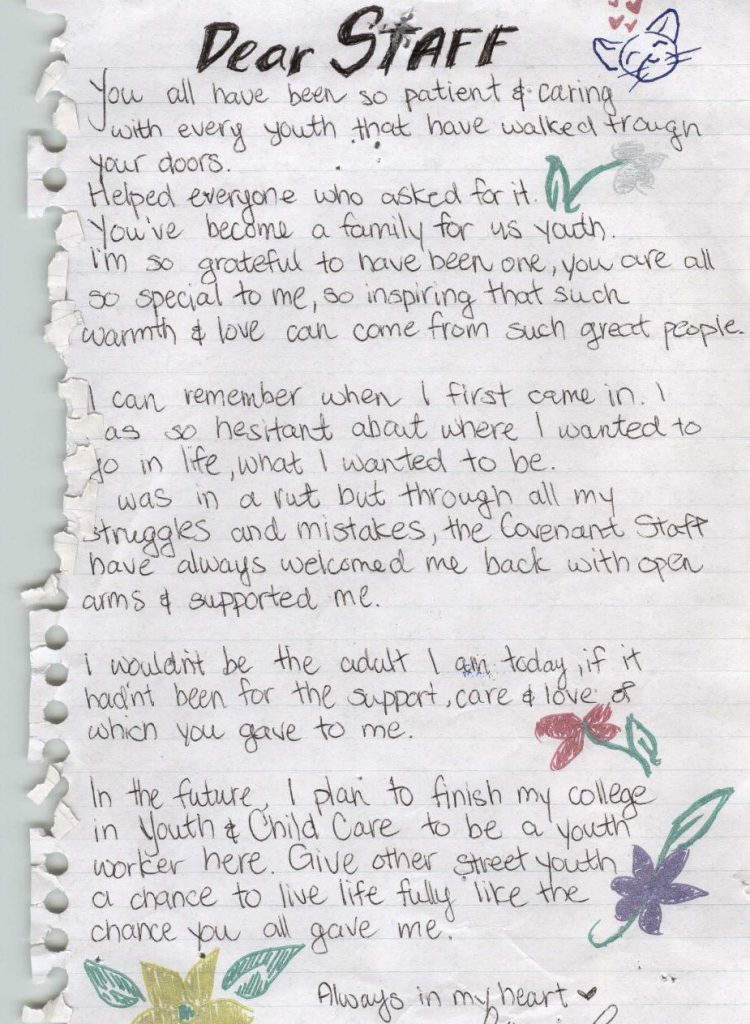 Dear STAFF
You all have been so patient & caring
with every youth that have walked trough
your doors.
Helped everyone who asked for it.
You've become a family for us youth.
I'm so grateful to have been one, you are all
so special to me, so inspiring that such
warmth & love can come from such great people.
I can remember when I first came in. I
as so hesitant about where I wanted to
go in life, what I wanted to be.
was in a rut but through all my
struggles and mistakes, the Covenant Staff
have always welcomed me back with open
arms & supported me.
i wouldn't be the adult I am today, if it
had'nt been for the support, care & love of
which you gave to me.
In the future, I plan to finish my college
in Youth & Child Care to be a youth
worker here. Give other street youth
a chance to live life fully like the
chance you all gave me.
Always in my heart ♥